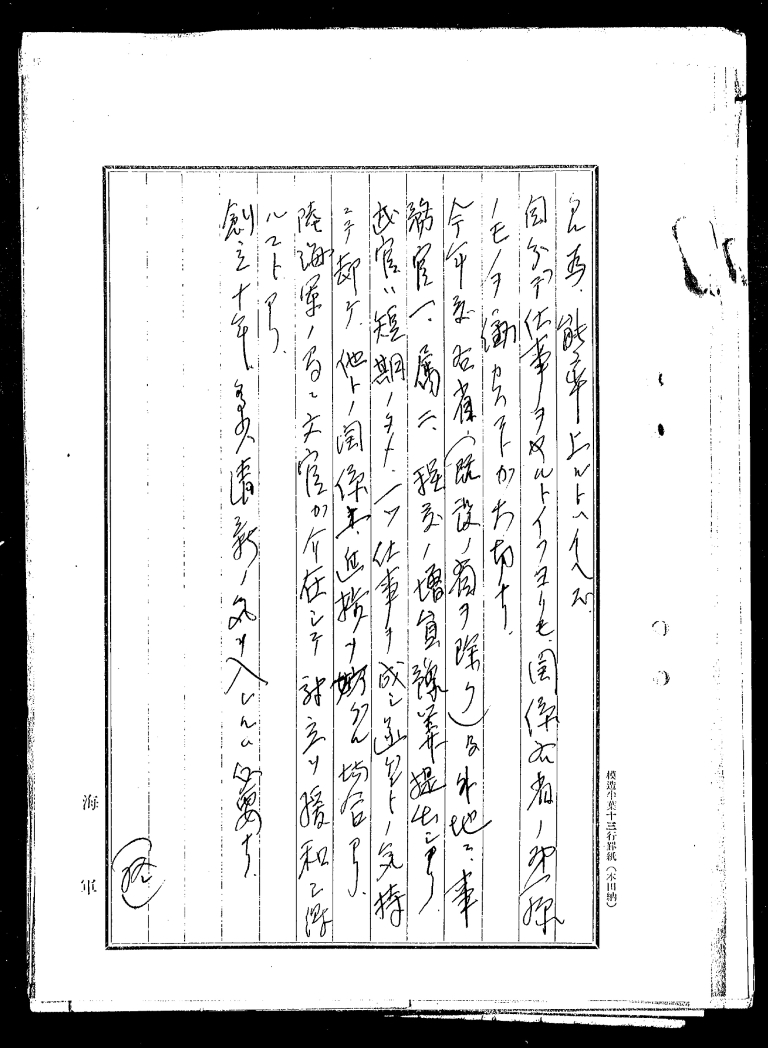 能率上ルトハイヘズ
自分デ仕事ヲヤルトイフヨリモ、関係各省ノ
ノモノヲ働カスコトガ大切ナリ
今年度各省(既設ノ省ヲ除ク)及外地ニ事
務官一、属二、程度ノ増員予算提出シアリ
武官ハ短期ノタメ、一ツ仕事ヲ成シ遂ゲントノ気持
ニテ却テ他トノ関係 近接ヲ妨グル場合アリ
陸海軍ノ間ニ文官ガ介在シテ対立ヲ援和シ得
ルコトアリ
創立十年、清新ノ気ヲ入レルハ必要ナリ
(終)
海軍
模造半葉十三行罫紙(本田納)